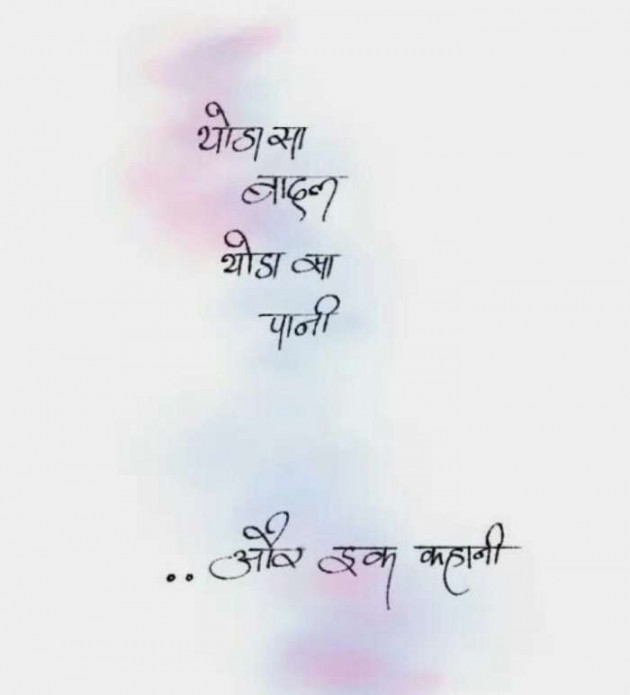 थोडा सा
बादल
थोडा सा
पानी
..और इक कहानी